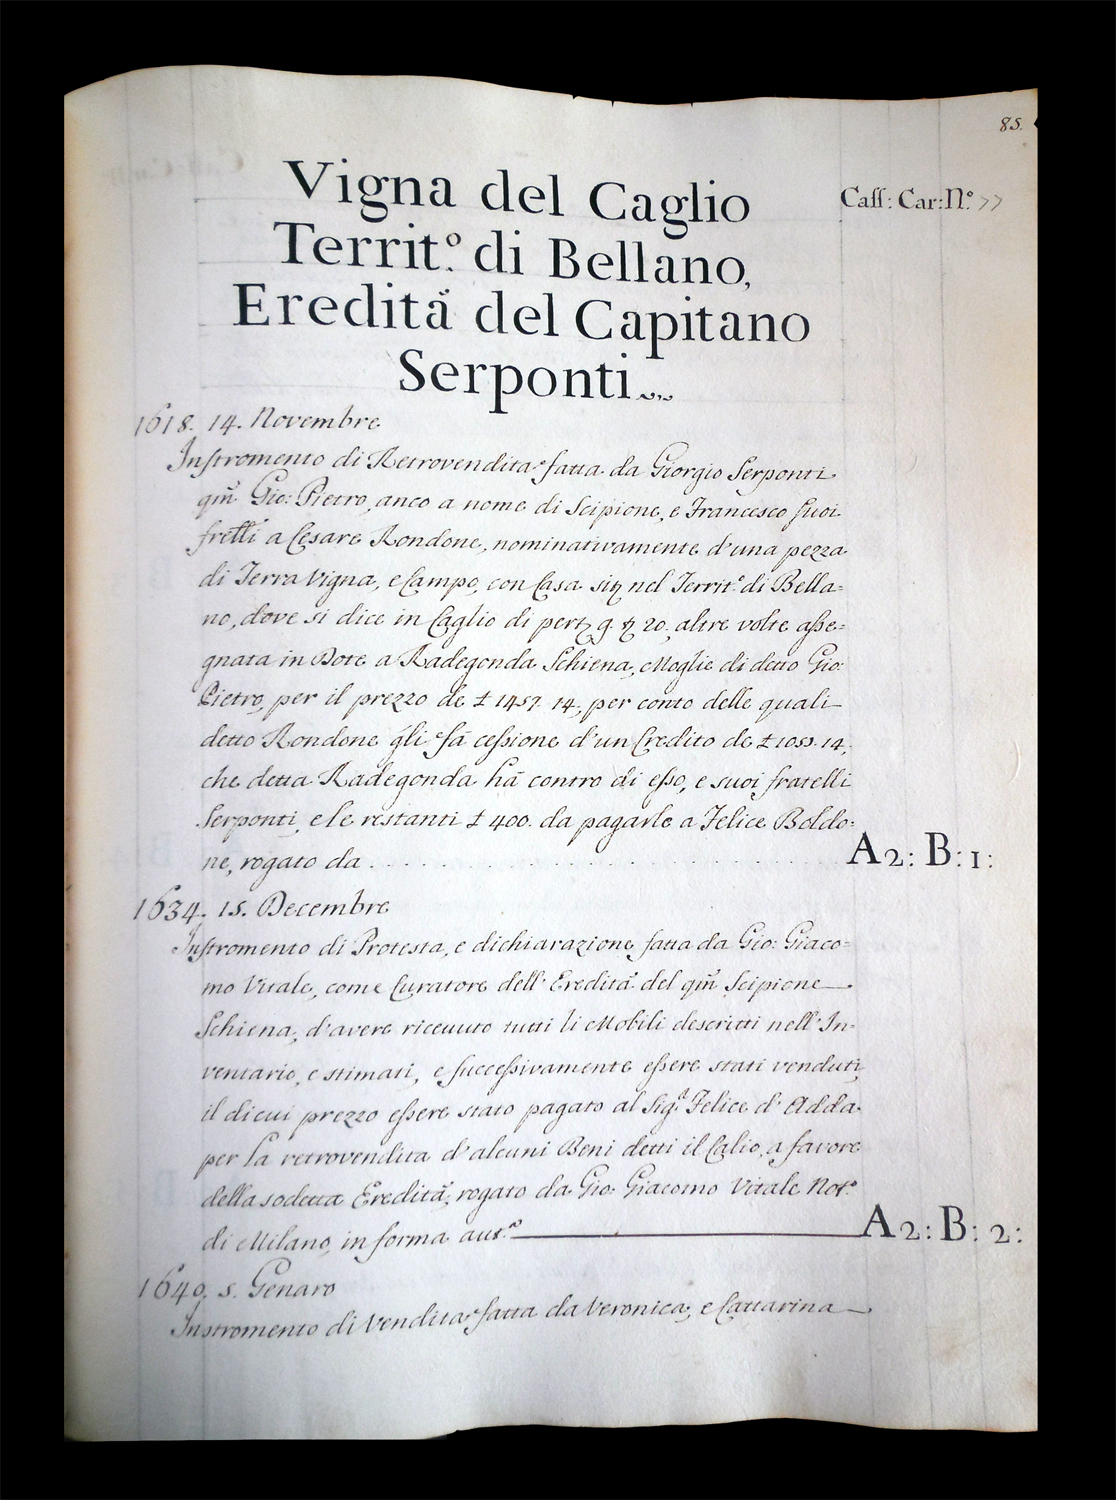 85.
Vigna del Caglio
Cass: Car: N.º 77
Territ.º di Bellano,
Eredità del Capitano
Serponti
1618. 14. Novembre
Instromento di Retrovendita fatta da Giorgio Serponti
qm̃ Gio: Pietro, anco a nome di Scipione, e Francesco suoi
frelli a Cesare Rondone, nominativamente d'una pezza
di Terra Vigna, e Campo, con Casa sitą nel Territ.º di Bella=
no, dove si dice in Caglio di pert. 9. 20. altre volte asse=
gnata in Dote a Radegonda Schiena, Moglie di detto Gio:
Pietro, per il prezzo de £ 1457. 14., per conto delle quali
detto Rondone gli fà cessione d'un Credito de £ 1055. 14.,
che detta Radegonda hà contro di esso, e suoi fratelli
Serponti, e le restanti £ 400. da pagarle a Felice Boldo=
ne, rogato da . . . . . A2: B: 1:
1634. 15. Decembre
Instromento di Protesta, e dichiarazione fatta da Gio: Giaco=
mo Vitale, come Curatore dell' Eredità del qm̃ Scipione
Schiena, d'avere riceuuto tutti li Mobili descritti nell' In=
ventario, e stimati, e successivamente essere stati venduti,
il di cui prezzo essere stato pagato al Sig.r Felice d' Adda
per la retrovendita d'alcuni Beni detti il Calio, a favore
della sodetta Eredità, rogato da Gio: Giacomo Vitale Not.º
di Milano, in forma aut.ª A2: B: 2:
1640. 5. Genaro
Instromento di Vendita fatta da Veronica, e Cattarina